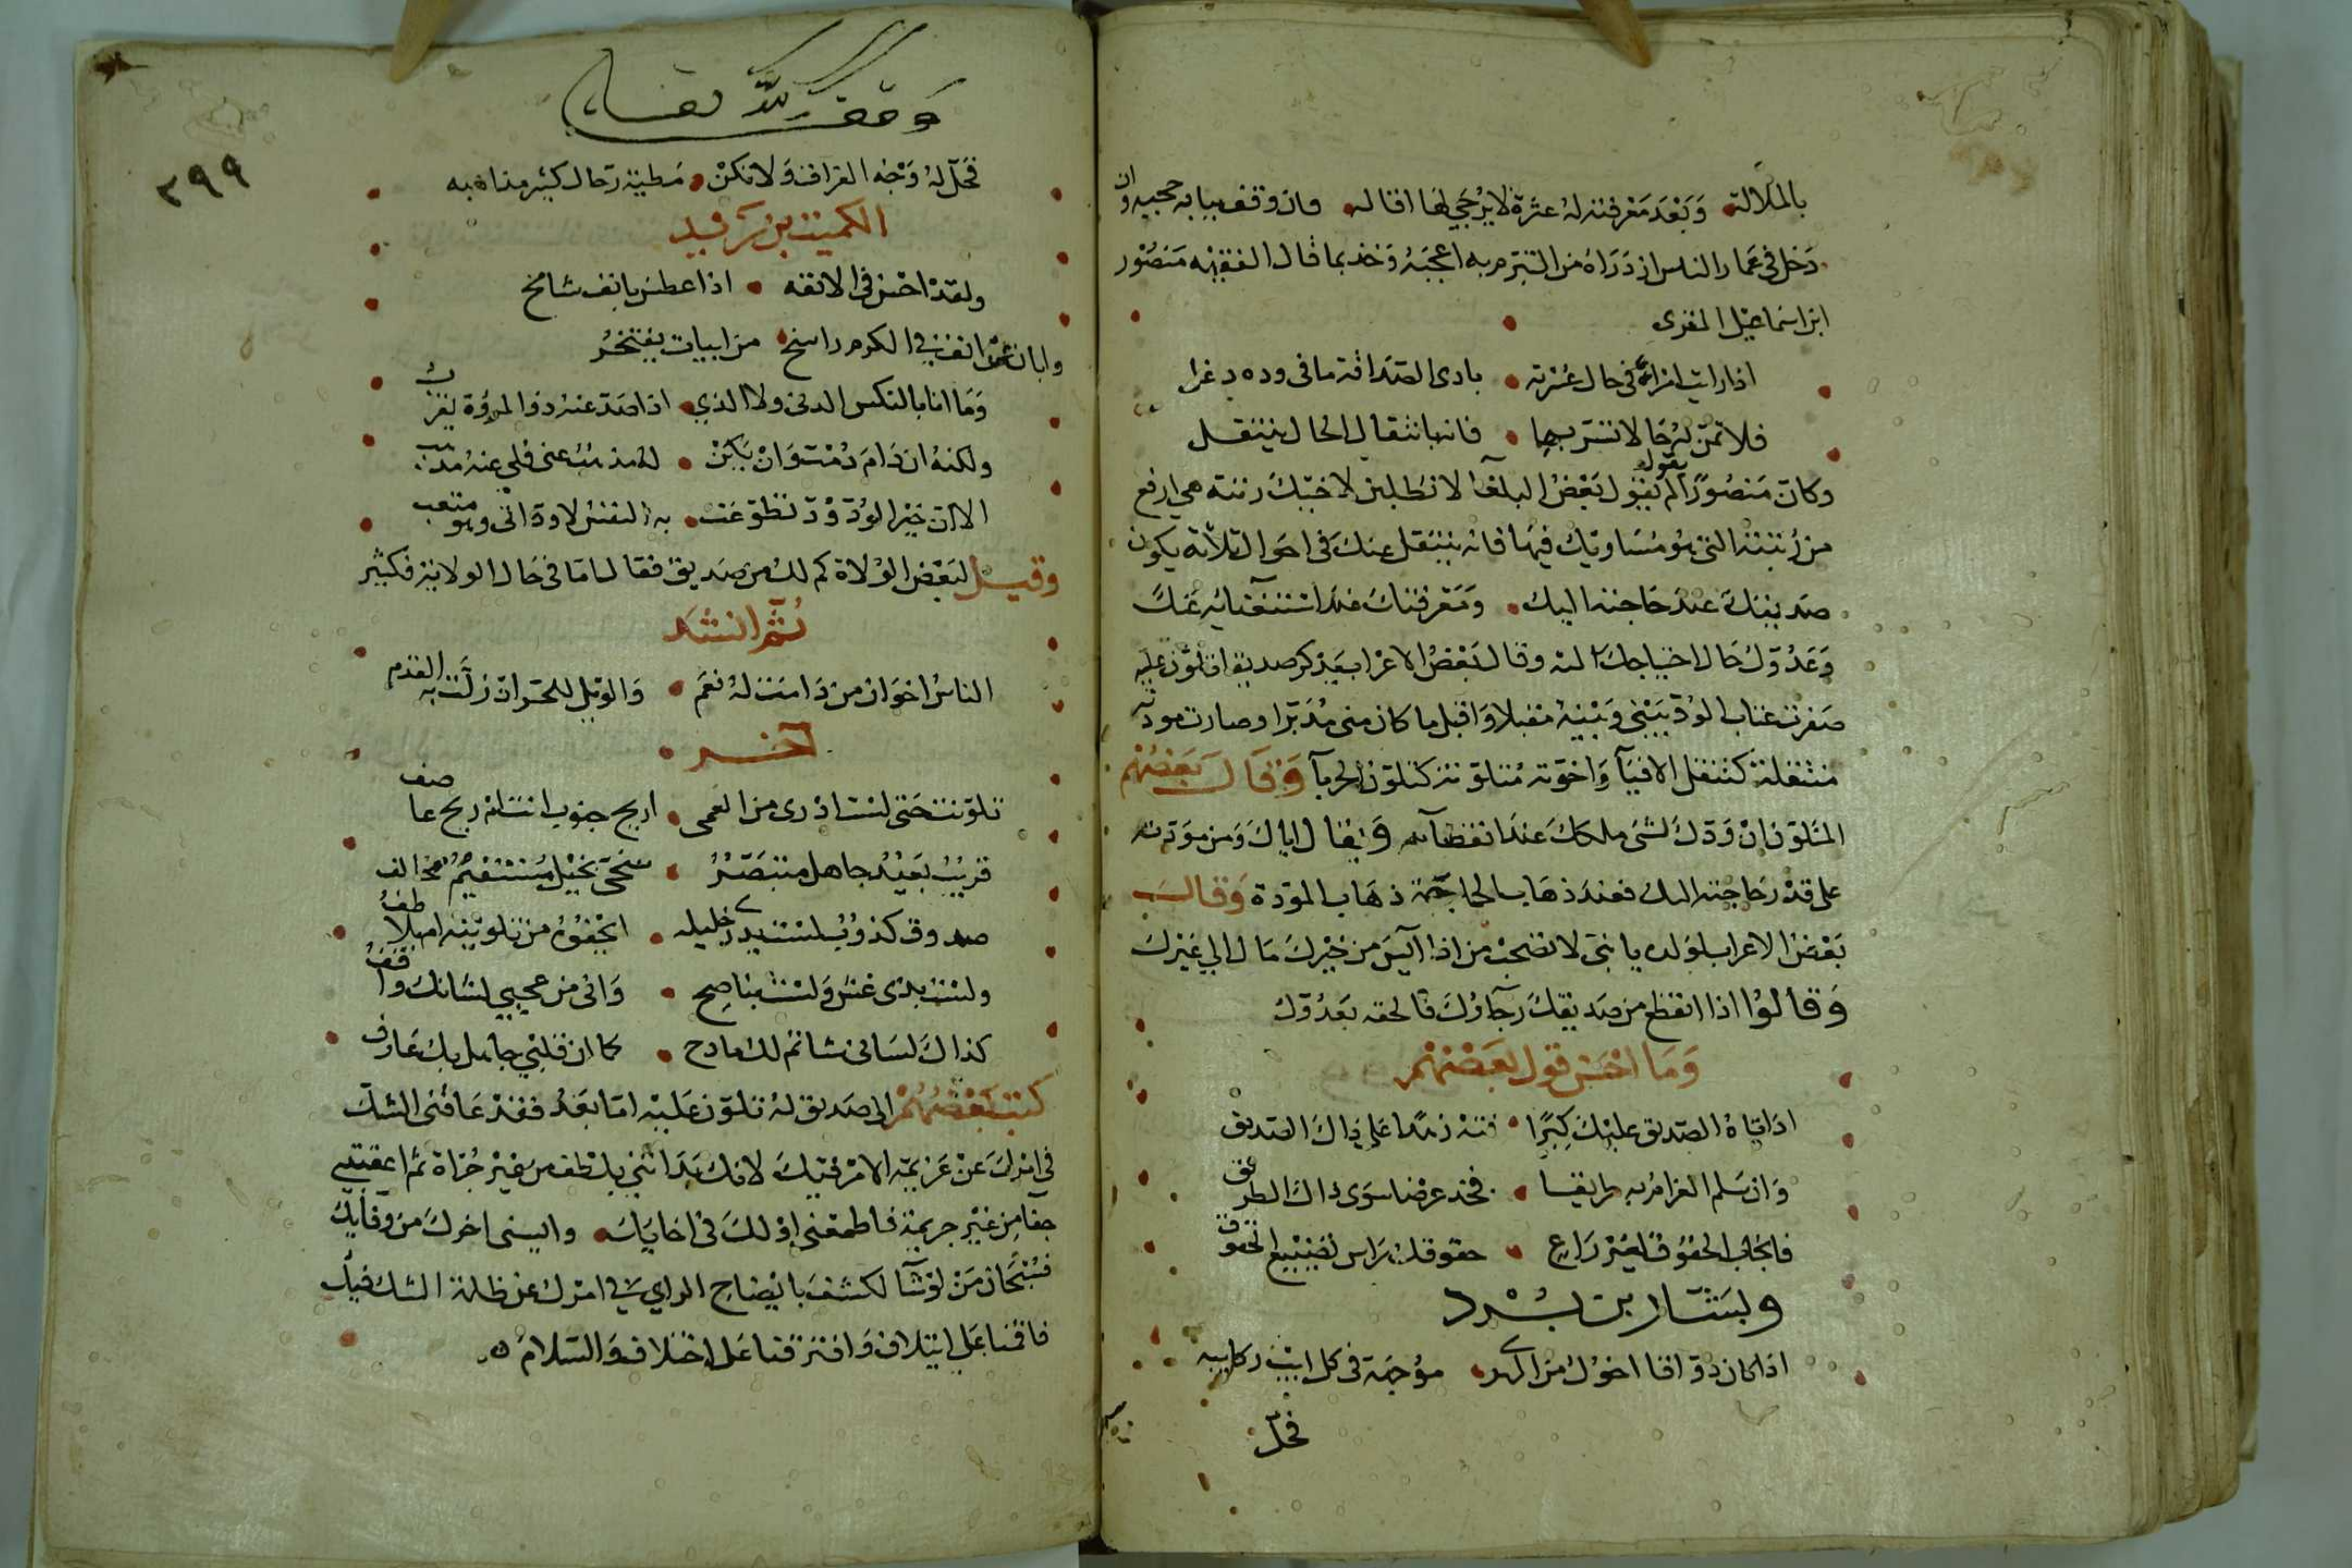 بالملالة وَبَعْدَ مَعْرفته لهُ عثرة لا يُرْجَي لها اقاله وان وقف ببابه حجبه وان
دَخل في غمار الناس ازدَرَاهُ من التبرم به اعجبَهُ وَخذ بما قال الفقيْه مَنصُوْر
ابن اسماعيْل المقرى
اذا رايت امرأً في حال عُسْرته بادى الصّدَاقة ما فى وده دغل
فلا تمنّ لهُ حَالا تسرّ بها فانه بانتقال الحال ينتقل
وكان مَنصُوْرًا لم يقول بَعْضُ البلغآ لا تطلبن لاخيْكَ رتبة هي ارفع
من رُتبته التى هُو مُسَاويْك فيْهَا فانه ينتقل عنك فى احوال ثلاثة يكون
صَديقكَ عندَ حَاجته اليك وَمَعْرفتكَ عندَ استغنآئه عَنكَ
وَعَدُوّك حَال احتياجكَ اليه وقال بَعْضُ الاعرَاب يَذكر صديقا تلوّن عليه
صَفرت عياب الودّ بَيْنى وَبْينهُ مقبلا وَاقبل ما كان منى مُدَبرًا وصارت مودته
منتقلة كتنقل الافيآ وَاخوّته مُتلوّنة كتلوّن الحربآ وَقَالَ بَعْضُهُم
المتلوّن انْ وَدّكَ لشئ ملكَكَ عندَ انقضآئه وَيُقال اياكَ وَمن مَوَدته
على قدْر حَاجته اليك فعندَ ذهَاب الحاجة ذهَاب المَوَدة وَقالَ
بَعْضُ الاعراب لوَلده يا بنىّ لا تصْحبْ من اذا آيسَ من خيْركَ مَال الي غيْركَ
وَقالوُا اذا انقطع من صَديقكَ رَجآؤُكَ فالحقه بعَدُوّك
وَمَا احْسَن قول بعَضهُم
اذا تاهَ الصَّديق عليْكَ كِبْرًا فته زهدًا عَلى ذاكَ الصّديق
وَان سَلم الغرامُ به طريقا فخذ عرْضا سوى ذاكَ الطريق
فايجَاب الحقُوق لغيْر رَاع حقوقك رَاس تضييْع الحقوق
ولبشار بن بُرْد
اذا كان ذوّاقا اخوْك من الهوى مؤجهة فى كل ايب ركايبه
فخلّ
وقف لله تعالى
٣٩٩
فخَلّ لهُ وَجْه الفراق وَلا تكنْ مَطيّة رَحال كثير مذاهبه
الكميت بن زيد
ولقدْ احْسَن فى الانفه اذا عطس بانف شامخ
وابان عن انف فى الكرم راسخ من ابيات يفتخرُ
وَمَا انا بالنكس الدنى ولا الذي اذا صَدّ عنه ذوا المروَّة يقربُ
ولكنهُ ان دَامَ دُمْت وَانْ يَكنْ لهُ مذهَبٌ عنى فلي عنهُ مذهب
الا ان خيْر الودّ وُدّ تطوّعت به النفسُ لا ودّ اتى وهو متعب
وقيل لبَعْض الوُلاة كم لك من صَديق فقال امّا في حَال الولاية فكثير
ثُمّ انشد
الناسُ اخوَان من دَامت لهُ نعَم وَالويْل للحَرّ ان زلّت به القدم
آخر
تلوّنت حَتى لسْت ادْرى من العمى اريح جنوب انت ام ريح عاصف
قريْبٌ بَعيْد جاهل متبَصّرُ سَخيّ بخيْل مُسْتقيْمٌ مخالف
صدوق كذوْبٌ لسْت يدرى خليله ايجْفوُه من تلويْنه ام يلاطفُ
ولسْت بذى غشّ وَلسْت بناصِح وَانى من عجبي لشانك واقفُ
كذاكَ لسَانى شاتم لك مادح كما ان قلبي جاهل بك عَارف
كتب بَعْضُهُمْ الى صَديق لهُ تلوّن عَليْه امّا بَعْدُ فقدْ عَاقنى الشك
في امْركَ عنْ عَزيمة الامْر فيْكَ لانك بَدَاتني بلطف من غيْر حُرْمَة ثم اعقبته
جفا مِن غيْرِ جريمة فاطمعَنى اوّلكَ فى اخايك وايسنى اخرك من وفآيك
فسُبْحَان مَنْ لوْ شآ لكشفَ بايْضاح الراي في امْرك عن ظلمة الشك فيك
فاقمنا عَلى ايتلاف وَافترقنا عَلى اختلاف وَالسّلامُ